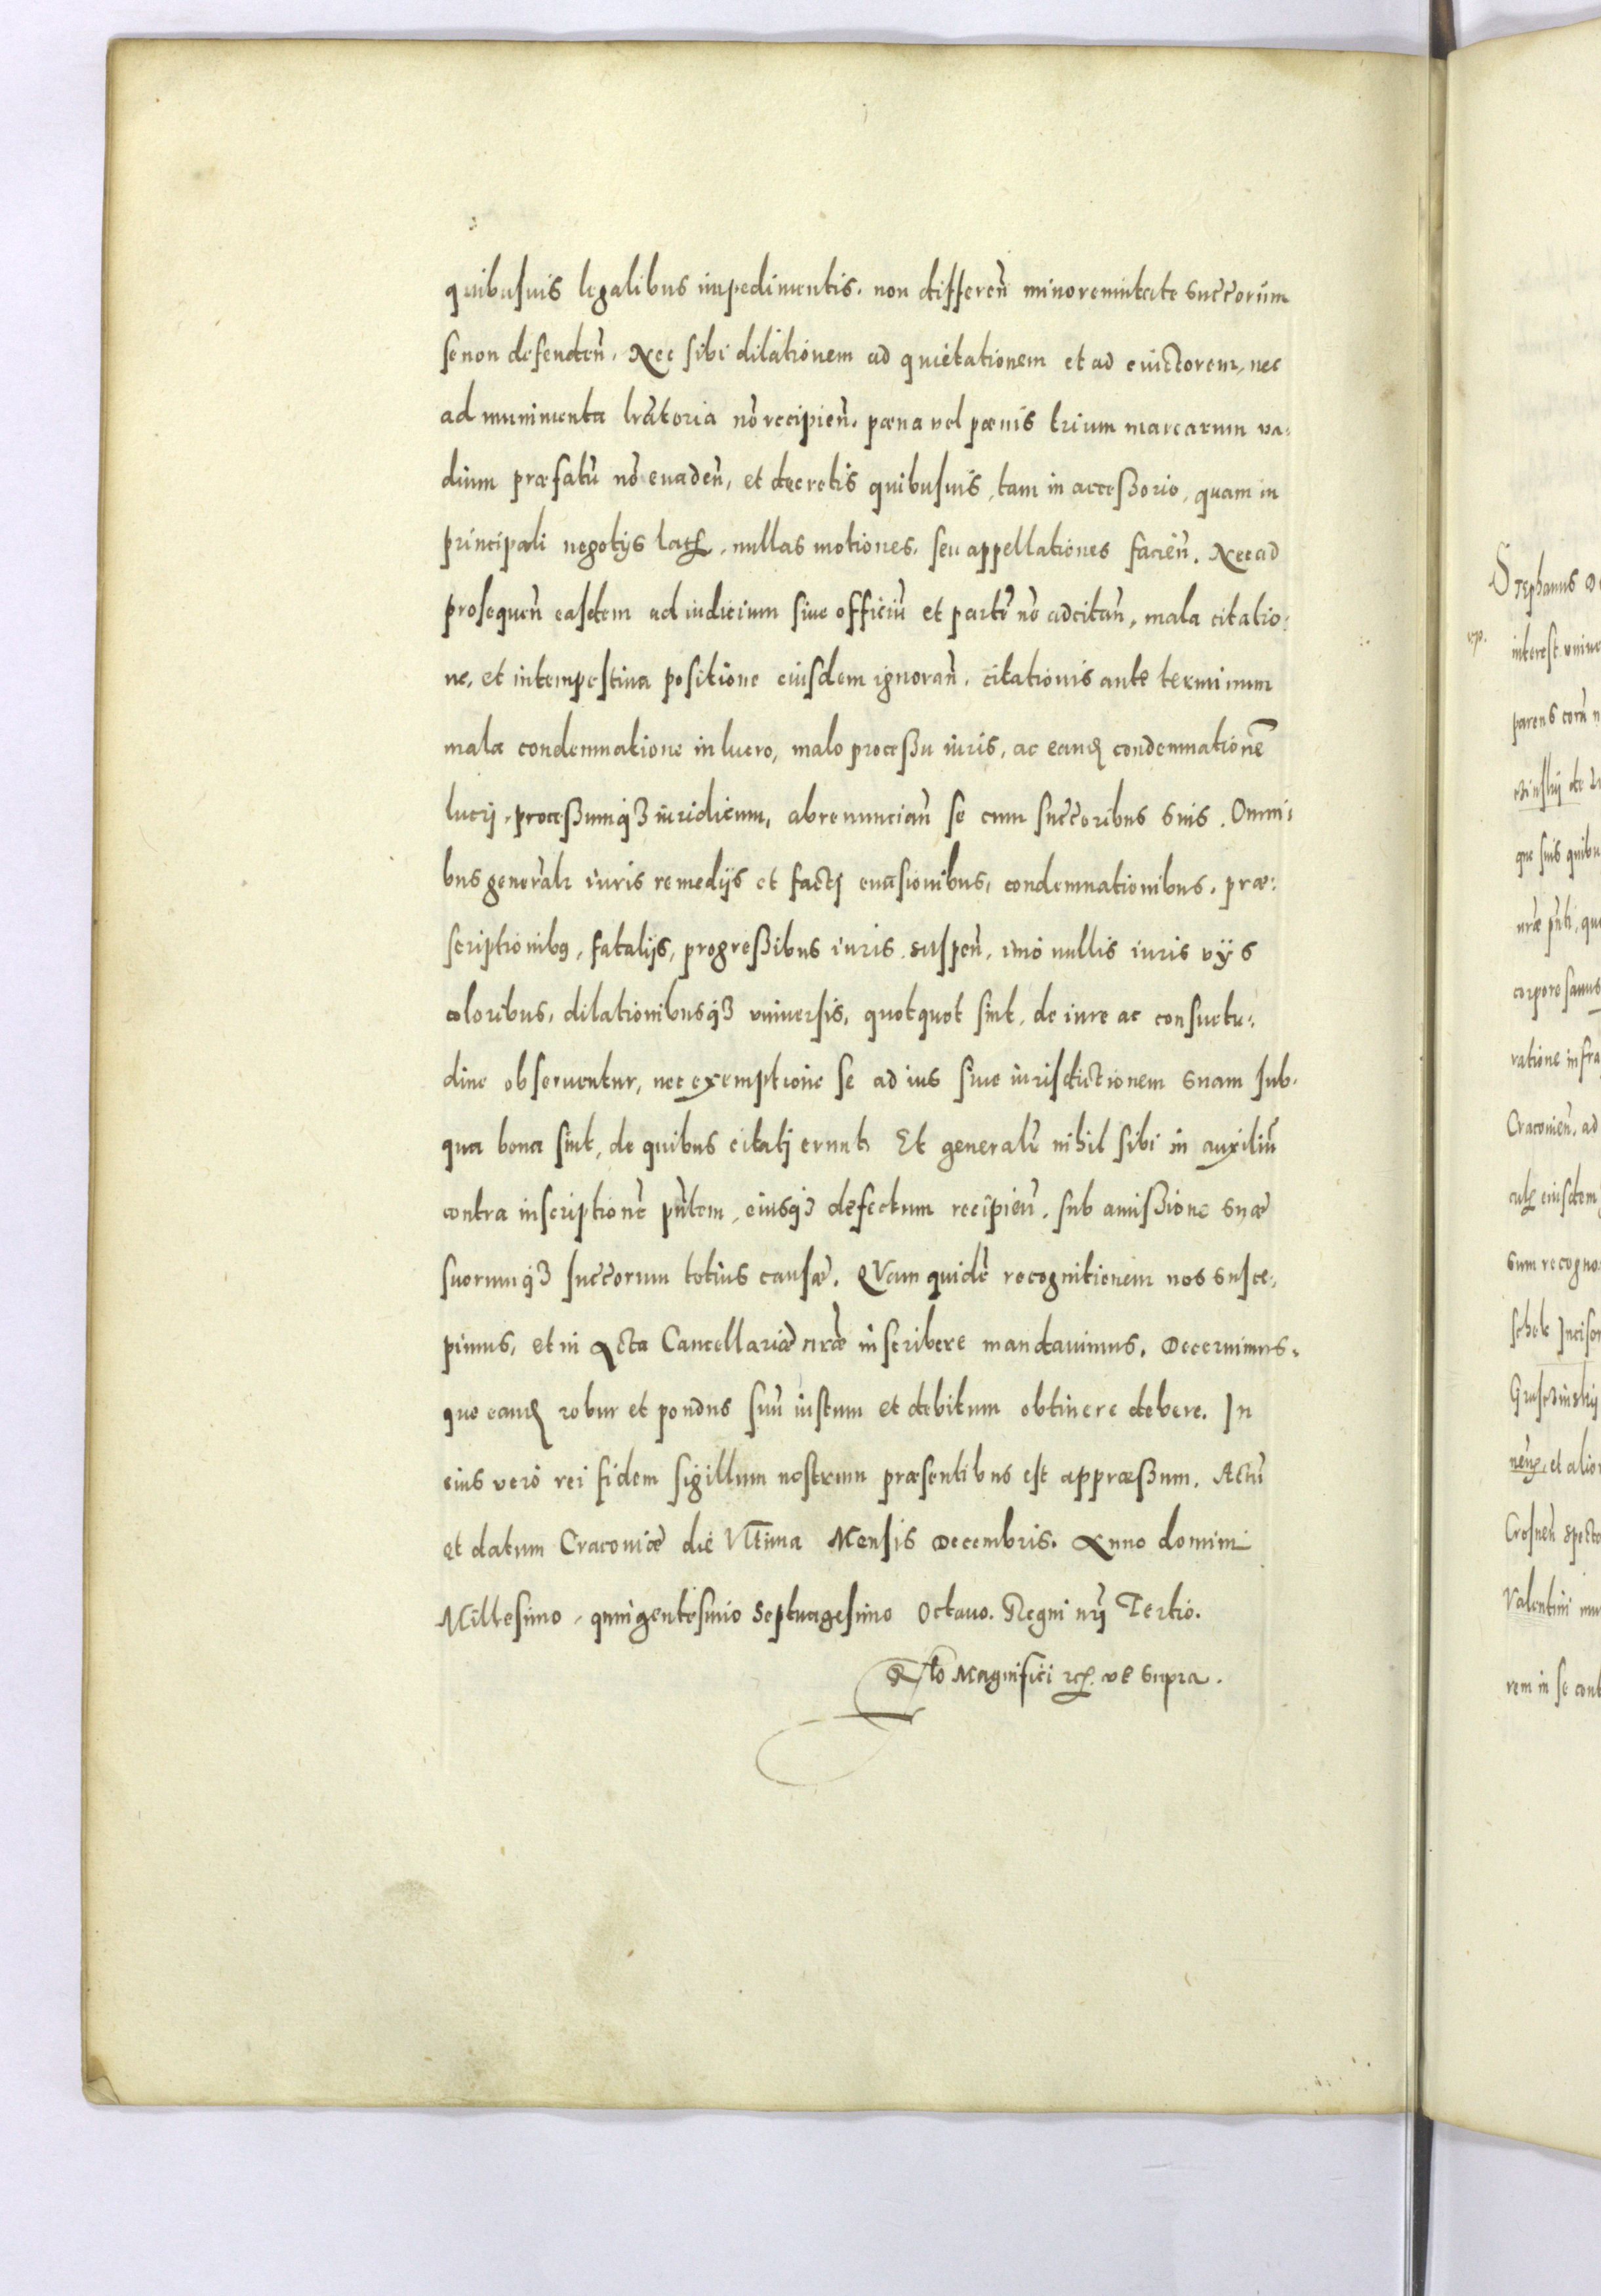 quibusuis legalibus impedimentis, non differen̄ minorennitate succ̄orum
se non defenden̄. Nec sibi dilationem ad quietationem et ad euictorem, nec
ad munimenta lr̄atoria nō recipien̄. pæna vel pænis trium marcarum va:
dium præfatū nō euaden̄, et decretis quibusuis, tam in accessorio, quam in
principali negotijs latꝭ, nullas motiones, seu appellationes facien̄. Nec ad
prosequen̄ easdem ad iudicium siue officiū et partē nō adcitan̄, mala citatio:
ne, et intempestiua positione eiusdem ignoran̄. citationis ante terminum
mala condemnatione in lucro, malo processu iuris, ac eandꝭ condemnationē
lucrj, processumqꝫ iuridicum, abrenuncian̄ se cum succ̄oribus suis. Omni:
bus general̄r iuris remedijs et factj euasionibus, condemnationibus, præ:
scriptionibꝰ, fatalijs, progressibus iuris suspen̄, imò nullis iuris vijs
coloribus, dilationibusqꝫ vniuersis, quotquot sint, de iure ac consuetu:
dine obseruentur, nec exemptione se ad ius siue iurisdictionem suam sub
qua bona sint, de quibus citatj erunt. Et generalr̄ nihil sibi in auxiliū
contra inscriptionē pn̄tem, eiusqꝫ defectum recipien̄. sub amissione suæ
suorumqꝫ succ̄orum totius causæ. QVam quidē recognitionem nos susce:
pimus, et in Acta Cancellariæ nr̄æ inscribere mandauimus. Decernimus:
que eandꝭ robur et pondus suū iustum et debitum obtinere debere. In
eius verò rei fidem sigillum nostrum præsentibus est appræssum. Actū
et datum Cracouiæ die Vlt̄ima Mensis Decembris. Anno domini
Millesimo, quingentesimo Septuagesimo Octauo. Regni nr̄j Tertio.
Rl̄o Magnifici rcꝭ. vt supra.
Stephanus De
interest vniue
parens corā n
que suis quibu
nr̄æ pn̄ti, qu
corpore sanus
ratione infra
Cracouien̄. ad
eiusdem
sum recogno
nen̄, et alio
Crosnen̄ specta
Valentini
rem in se cont